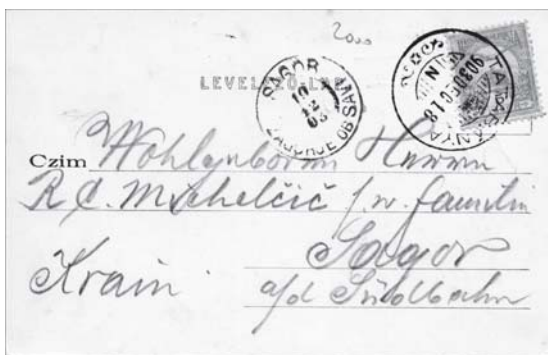 2000
LEVELEZŐ-LAP
SAGOR
19
12
03
ZAGORJE OB SAVI
TATABÁNYA
903 DEC 18
Czim Wohlgeborenen Herrn
R. C. Michelčič s. w. Familie
Sagor
Krain
a/d Südbahn